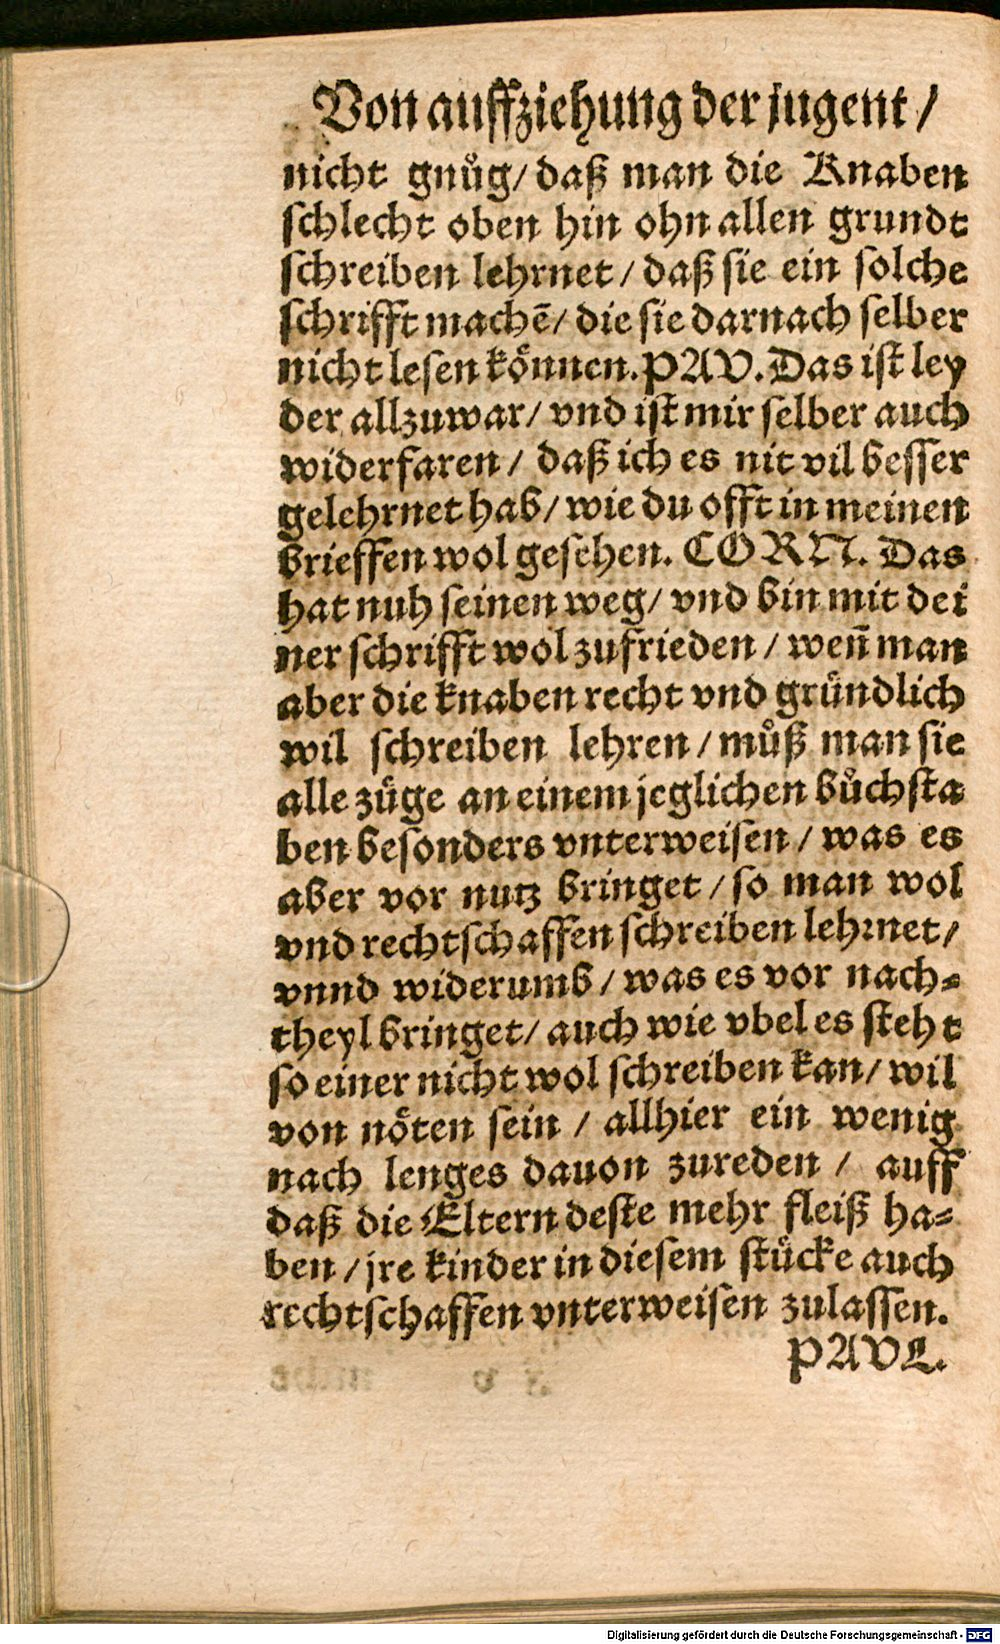 Von auffziehung der jugent /
nicht gnůg/ daß man die Knaben
schlecht oben hin ohn allen grundt
schreiben lehrnet / daß sie ein solche
schrifft machē/ die sie darnach selber
nicht lesen können. PAV. Das ist ley
der allzuwar/ vnd ist mir selber auch
widerfaren / daß ich es nit vil besser
gelehrnet hab/ wie du offt in meinen
brieffen wol gesehen. CORN. Das
hat nuh seinen weg/ vnd bin mit dei
ner schrifft wol zufrieden / weñ man
aber die knaben recht vnd gründlich
wil schreiben lehren / můß man sie
alle züge an einem jeglichen bůchsta
ben besonders vnterweisen / was es
aber vor nutz bringet / so man wol
vnd rechtschaffen schreiben lehꝛnet/
vnnd widerumb / was es vor nach⸗
theyl bringet/ auch wie vbel es steht
so einer nicht wol schreiben kan/ wil
von nöten sein / allhier ein wenig
nach lenges dauon zureden / auff
daß die Eltern deste mehr fleiß ha⸗
ben / jre kinder in diesem stücke auch
rechtschaffen vnterweisen zulassen.
PAVL.
Digitalisierung gefördert durch die Deutsche Forschungsgemeinschaft - DFG